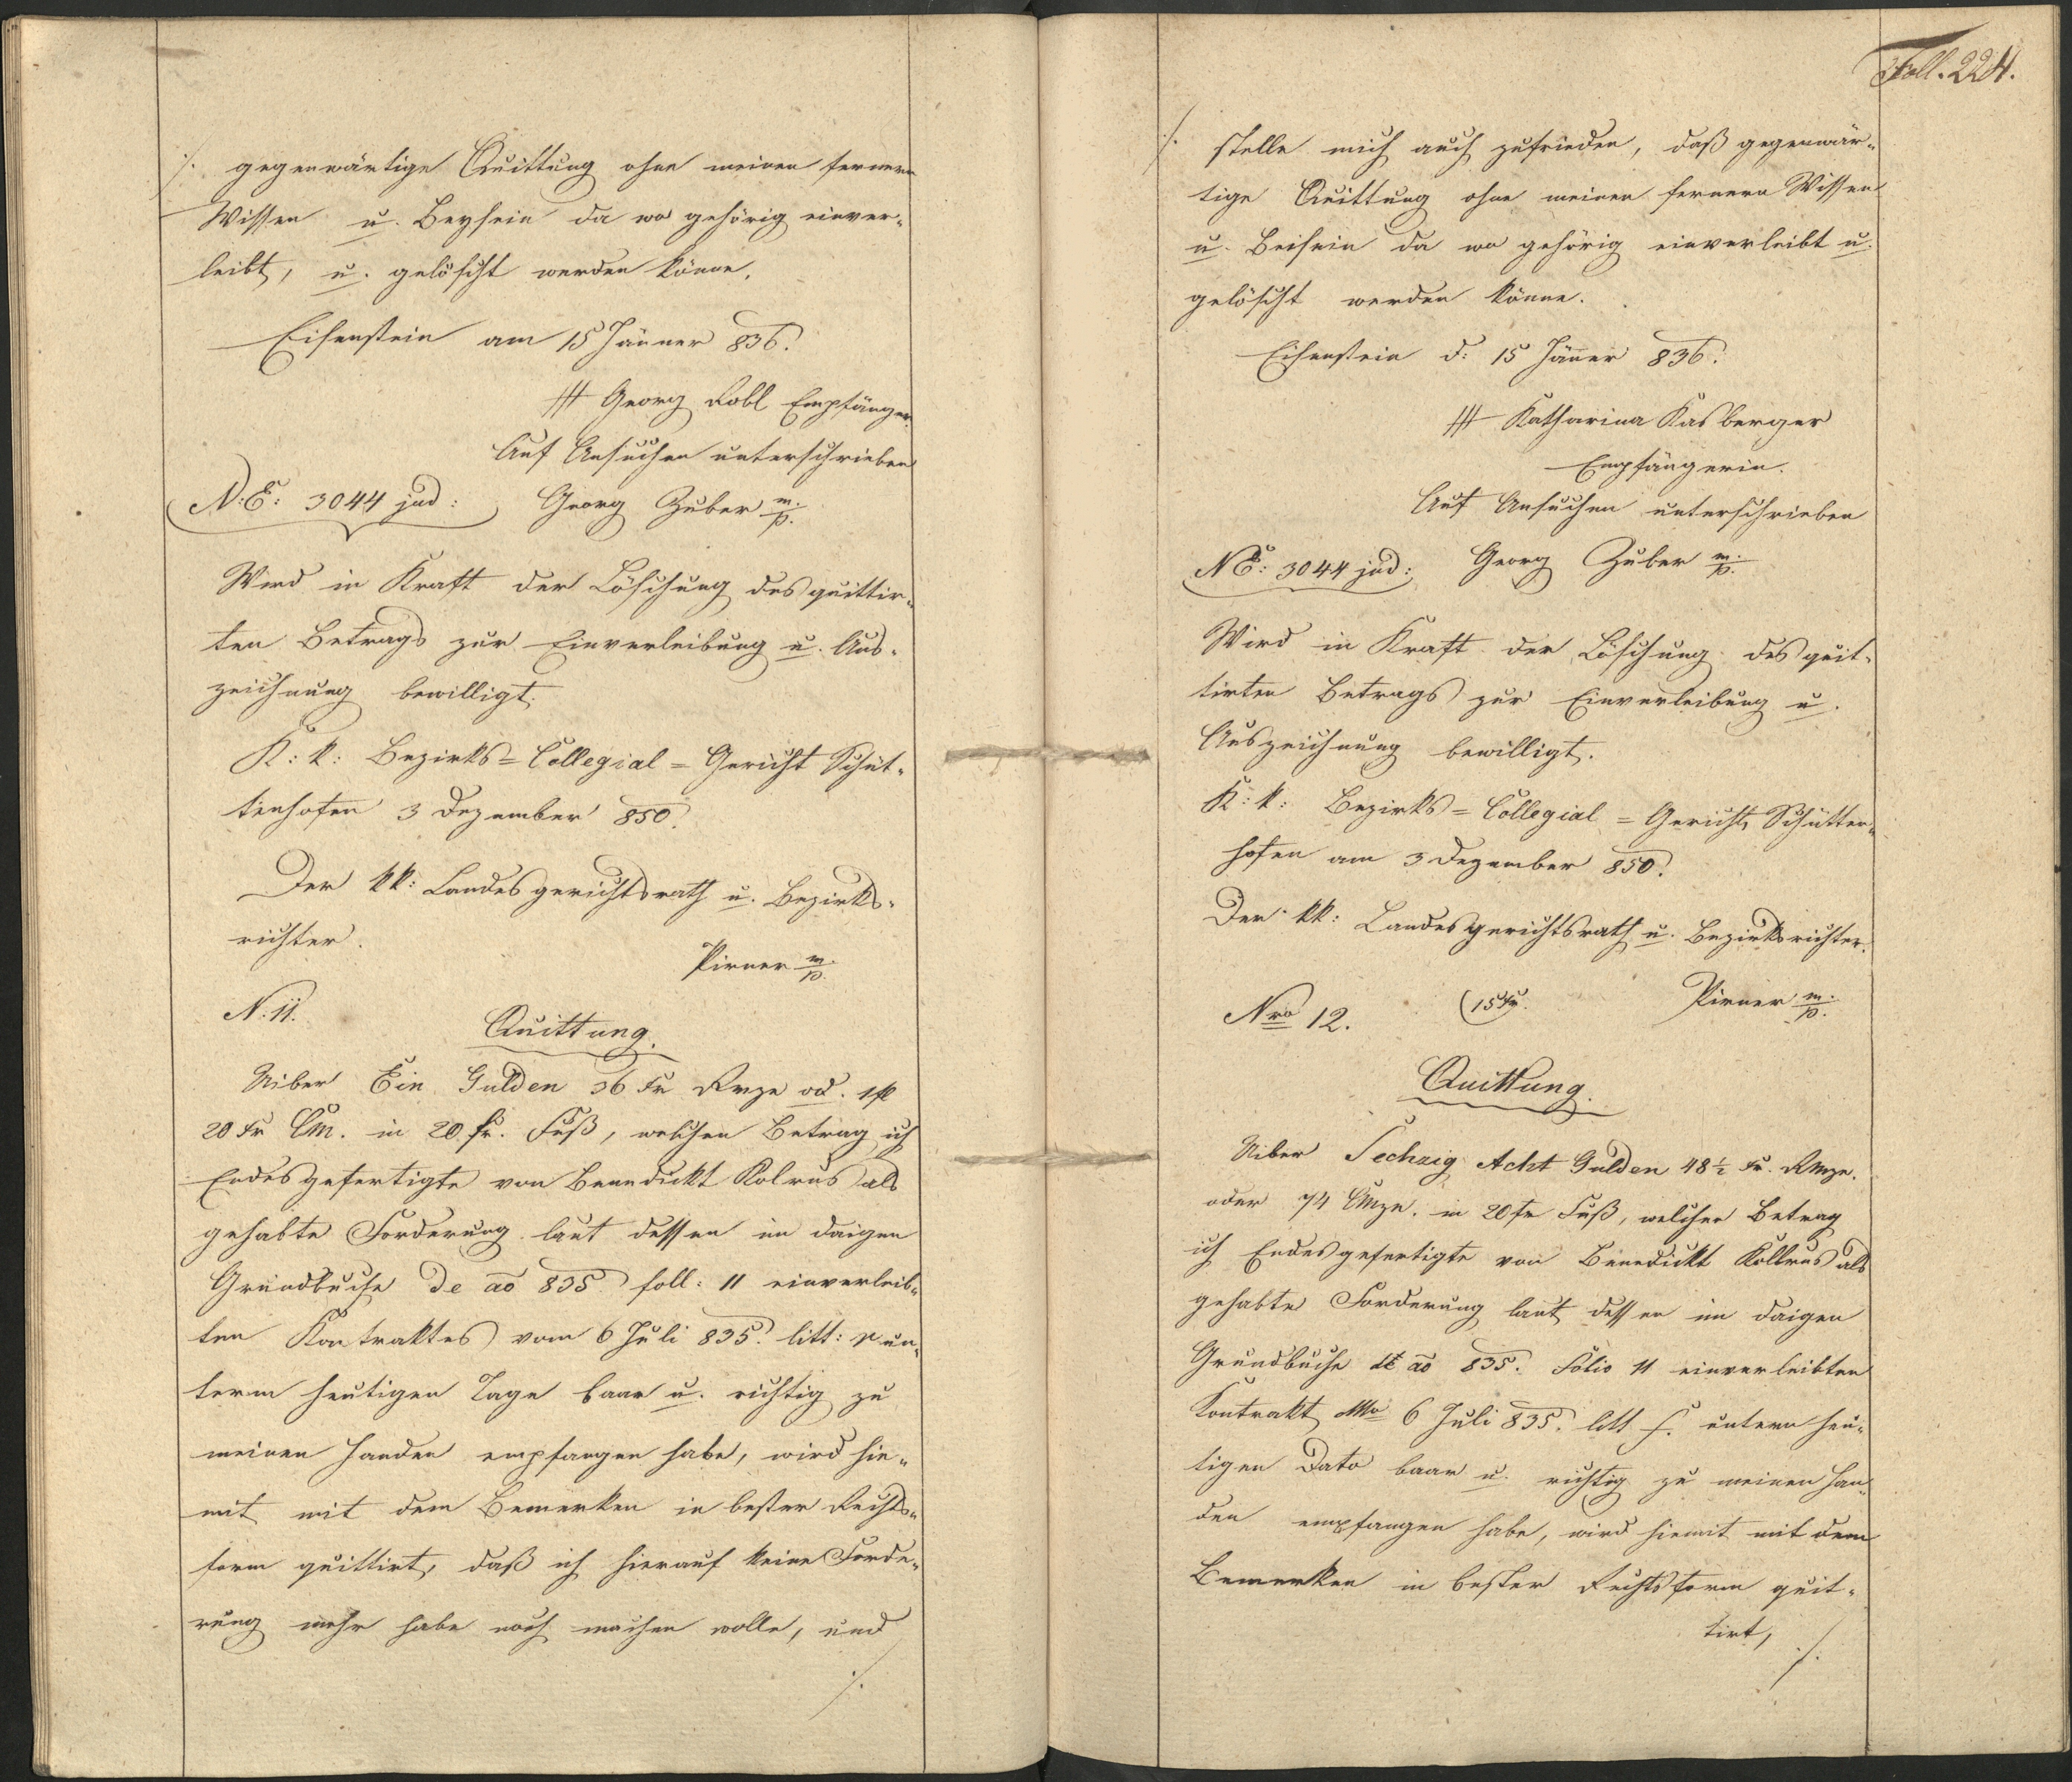 ·/. gegenwärtige Quittung ohne meinen fernern
Wissen u. Beysein da wo gehörig einver-
leibt, u. gelöscht werden könne.
Eisenstein am 15 Jänner 836.
/// Georg Kobl Empfänger.
Auf Ansuchen unterschrieben
N:E: 3044 jud: Georg Zuber m/p.
Wird in Kraft der Löschung des quittir-
ten Betrags zur Einverleibung u. Aus-
zeichnung bewilligt.
K: k: Bezirks=Collegial=Gericht Schüt-
tenhofen 3 Dezember 850.
Der kk: Landesgerichtsrath u. Bezirks-
richter.
Pirner m/p.
N: 11.
Quittung.
Uiber Ein Gulden 36 Kr Rmze od. 1 fl
20 Kr CM. in 20 fr. Fuß, welchen Betrag ich
Endesgefertigte von Benedickt Kolrus als
gehabte Forderung laut dessen im daigen
Grundbuche de ao 835. foll: 11 einverleib-
ten Kontraktes vom 6 Juli 835. litt: r un-
term heutigen Tage baar u. richtig zu
meinen Handen empfangen habe, wird hie-
mit mit dem Bemerken in bester Rechts-
form quittirt, daß ich hierauf keine Forde-
rung mehr habe noch machen wolle, und
·/.
Foll. 224.
·/. stelle mich auch zufrieden, daß gegenwär-
tige Quittung ohne meinen fernern Wissen
u. Beisein da wo gehörig einverleibt u.
gelöscht werden könne.
Eisenstein d: 15 Jäner 836.
/// Katharina Kasberger
Empfängerin.
Auf Ansuchen unterschrieben
NE: 3044 jud: Georg Zuber m/p.
Wird in Kraft der Löschung des quit-
tirten Betrags zur Einverleibung u.
Auszeichnung bewilligt.
K: k: Bezirks=Collegial=Gericht Schütten-
hofen am 3 Dezember 850.
Der kk: Landesgerichtsrath u. Bezirksrichter.
Pirner m/p.
Nro 12. (15 Kr.
Quittung.
Uiber Sechzig Acht Gulden 48 1/2 Kr. RMze.
oder 74 CMze. in 20 fr Fuß, welchen Betrag
ich Endesgefertigte von Benedickt Kollrus als
gehabte Forderung laut dessen im daigen
Grundbuche de ao 835. Folio 11 einverleibten
Kontrakt 6 Juli 835. litt f. untern heu-
tigen Dato baar u. richtig zu meinen Han-
den empfangen habe, wird hiemit mit dem
Bemerken in bester Rechtsform quit-
tirt,
·/.